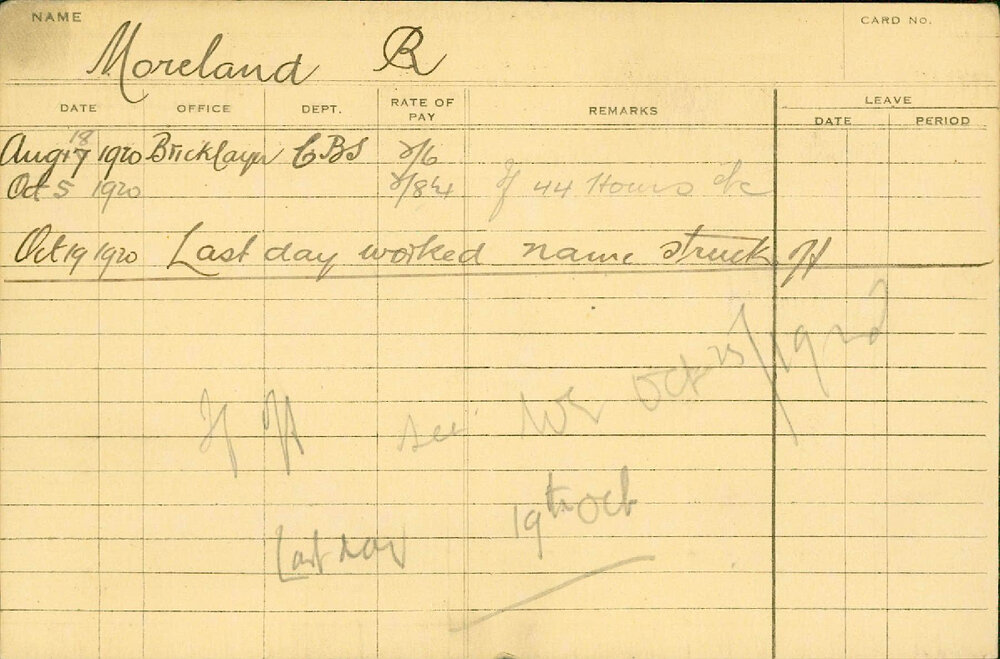 NAME
CARD NO.
Moreland R
DATE OFFICE DEPT. RATE OF PAY REMARKS LEAVE
DATE PERIOD
18
Aug 17 1920 Bricklayer CBS 2/6
Oct 5 1920 2/8¼ 44 Hours
Oct 19 1920 Last day worked name struck off
off see Oct 25/1920
Last day 19th Oct